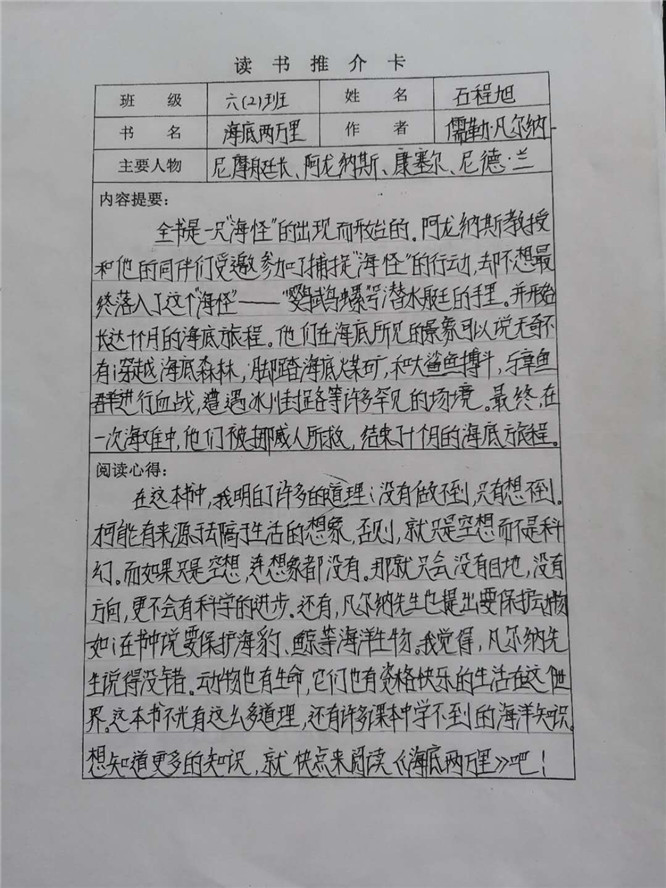 读书推介卡
班级 六(2)班 姓名 石程旭
书名 海底两万里 作者 儒勒·凡尔纳
主要人物 尼摩艇长、阿龙纳斯、康塞尔、尼德·兰
内容提要:
全书是一只"海怪"的出现而开始的。阿龙纳斯教授
和他的同伴们受邀参加了捕捉"海怪"的行动,却不想最
终落入了这个"海怪"——"鹦鹉螺"号潜水艇王的手里。并开始
长达十月的海底旅程。他们在海底所见的景象可以说无奇不
有:穿越海底森林,脚踏海底煤矿,和大鲨鱼搏斗,与章鱼
群进行血战,遭遇冰川封路等许多罕见的场境。最终,在
一次海难中,他们被挪威人所救,结束了十个月的海底旅程。
阅读心得:
在这本书中,我明白了许多的道理:没有做不到,只有想不到。
可能有来源于去隔于生活的想象,否则,就只是空想而不是科
幻。而如果只是空想,连想象都没有。那就只会没有目地,没有
方向,更不会有科学的进步。还有,凡尔纳先生也提出要保护动物
如:在书中说要保护海豹、鲸等海洋生物。我觉得,凡尔纳先
生说得没错。动物也有生命,它们也有资格快乐的生活在这个世
界。这本书不光有这么多道理,还有许多课本中学不到的海洋知识。
想知道更多的知识,就快点来阅读《海底两万里》吧!